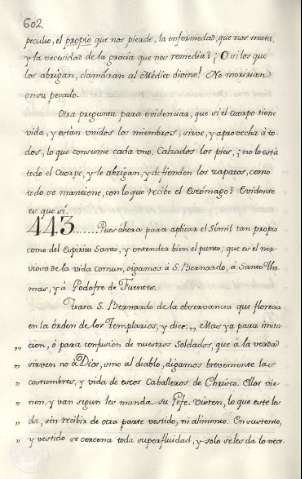 602
peculio, el propio que nos pierde, la enfermedad, que nos mata,
y la necesidad de la gracia que nos remedia? ¡O si los que
los abrigan, clamaran al Médico divino! No moririan
en su pecado.
Otra pregunta para evidenciar, que si el cuerpo tiene
vida, y están unidos los miembros, sirve, y aprovecha á to-
dos, lo que consume cada uno. Calzados los pies, ¿no lo está
todo el Cuerpo, y le abrigan, y defienden los zapatos, como
todo se mantiene, con lo que recibe el Estómago? Evidente
es que sí.
443......Pues ahora para aplicar el Simil tan propio
como del Espiritu Santo, y entender bien el punto, que es el ner-
vioso de la vida comun, oigamos á S. Bernardo, á Santo Tho-
mas, y á Godofre de Fuentes.
Trata S. Bernardo de la observancia que florecia
en la orden de los Templarios, y dice: „ Mas ya para imita-
„ cion, ó para confusion de nuestros Soldados, que á la verdad
„ sirven no á Dios, sino al diablo, digamos brevemente las
„ costumbres, y vida de estos Caballeros de Christo. Ellos vie-
„ nen, y van segun les manda su Gefe. Visten, lo que este les
„ da, sin recibir de otra parte vestido, ni alimento. En sustento,
„ y vestido se cercena toda superfluidad, y solo se les da lo nece-